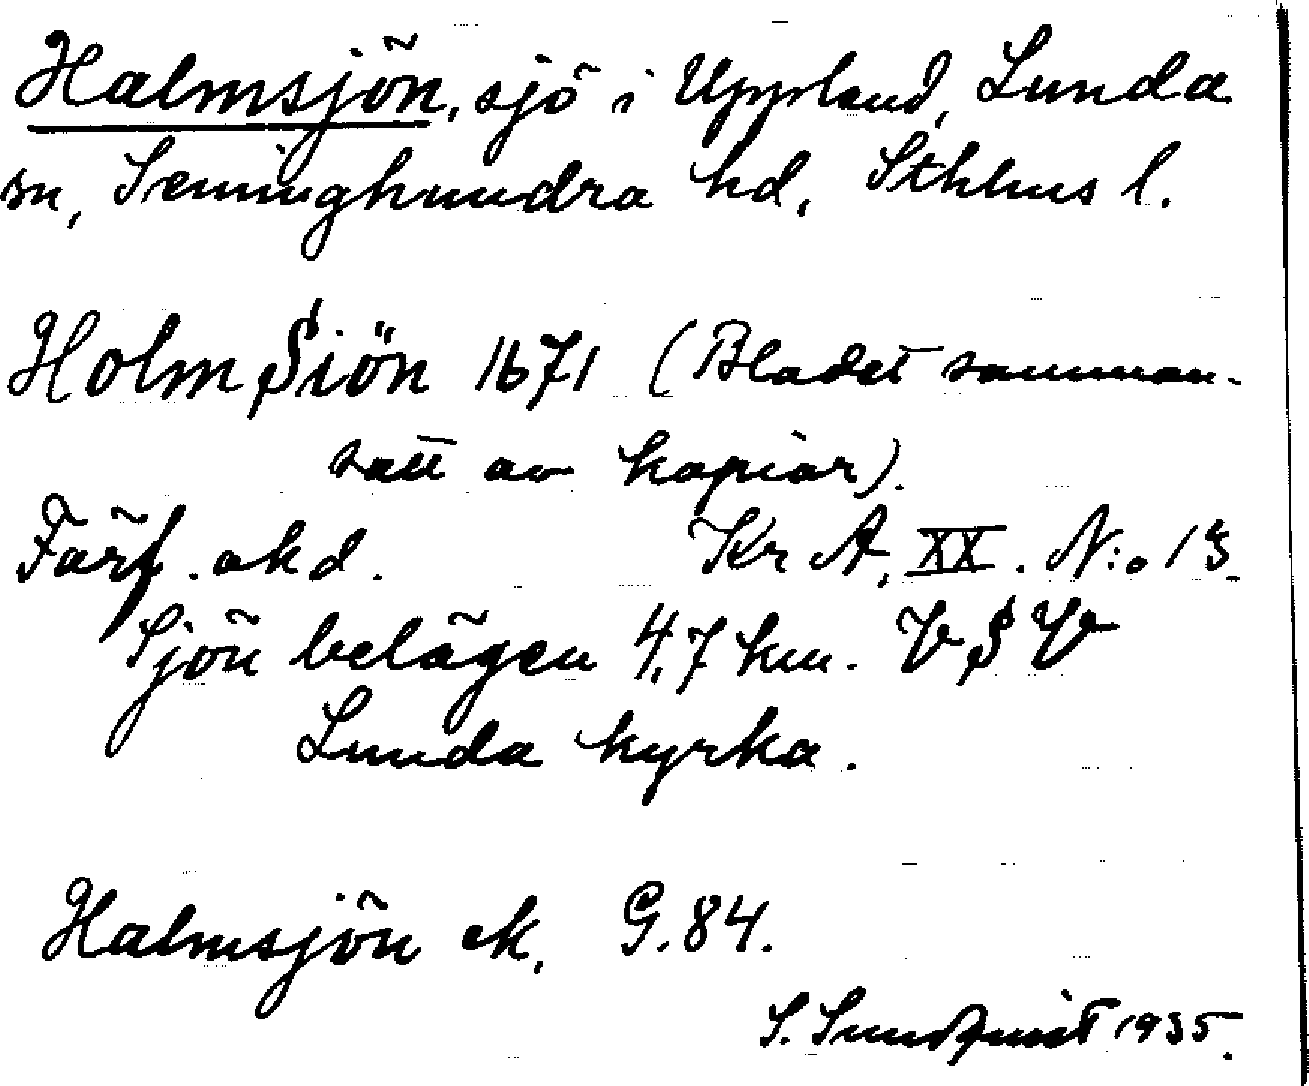 Halmsjön, sjö i Uppland, Lunda
sn, Seminghundra hd, Sthlms l.
Holm Siön 1671 (Bladet samman-
satt av kopior).
Färf. akd. Kr A, XX. N:o 13.
Sjön belägen 4,7 km. V S V
Lunda kyrka.
Halmsjön ek. G. 84.
S. Sundqvist 1935.